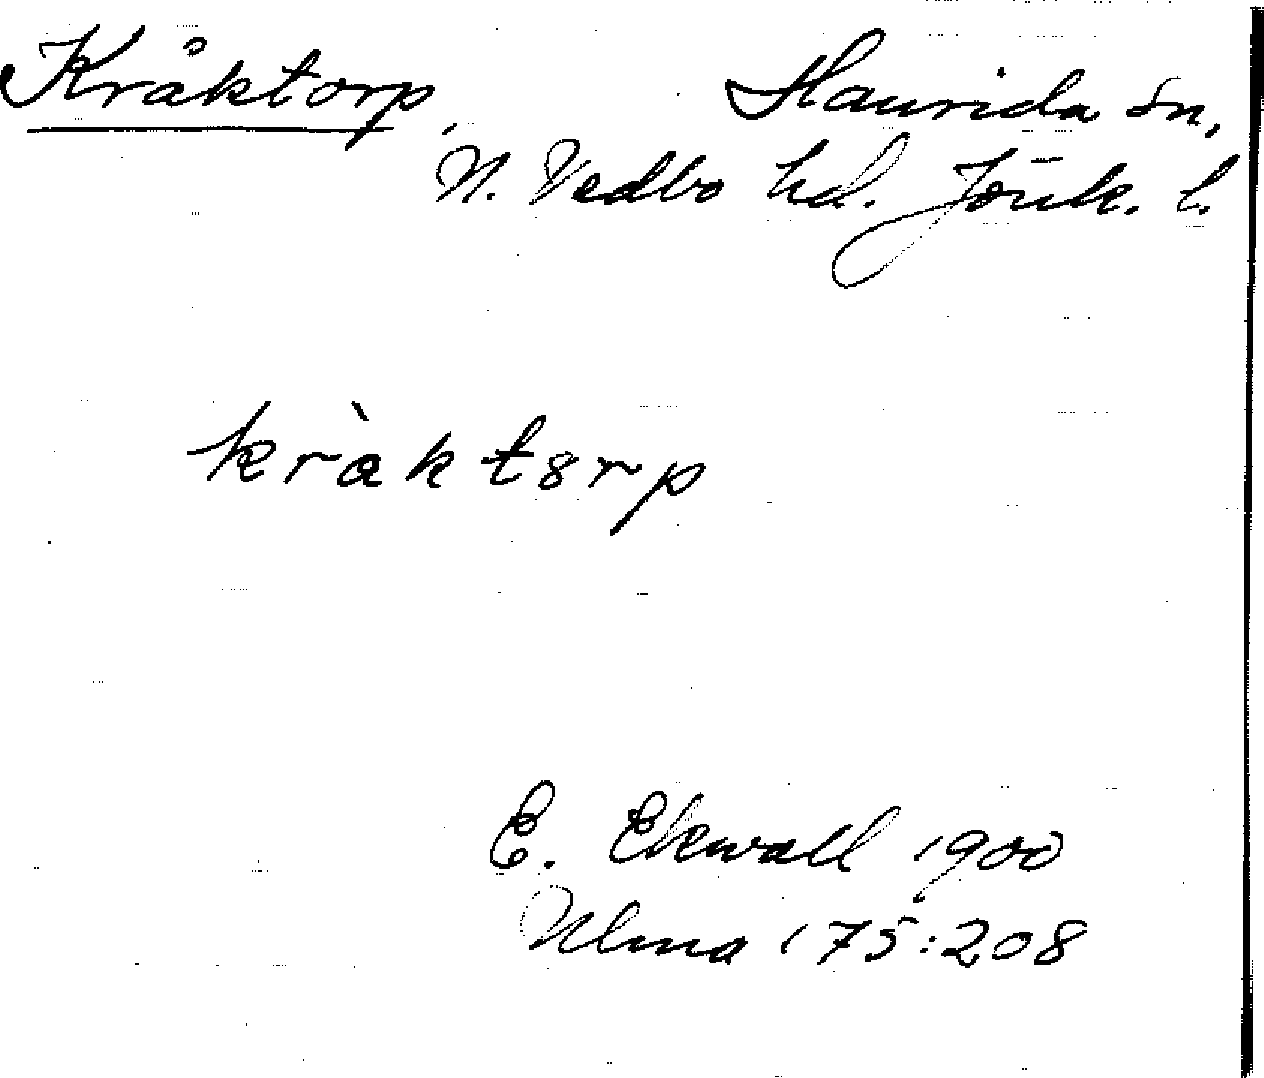 Kråktorp, Haurida sn,
N. Vedbo hd. Jönk. l.
kràktorp
E. Ekwall 1900
Ulma 175:208